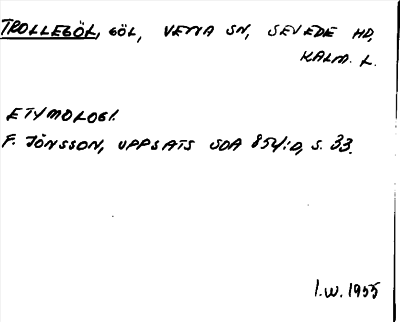 TROLLEGÖL, GÖL, VENA SN, SEVEDE HD,
KALM. L.
ETYMOLOGI.
F. JÖNSSON, UPPSATS SOA 854:D, S. 33.
I.W. 1955